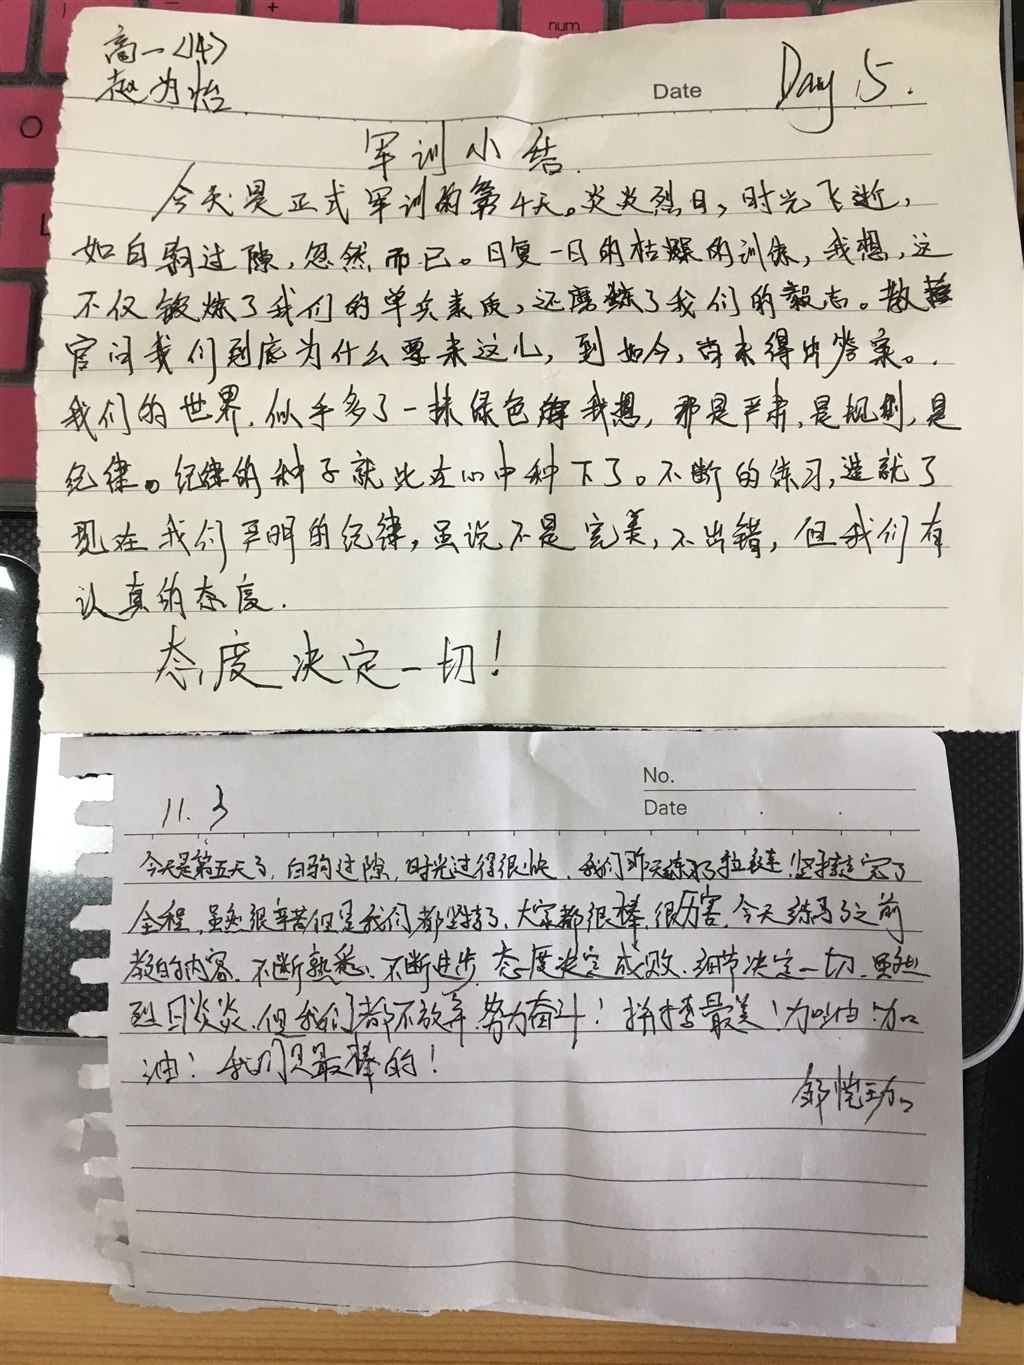 num
高一〈14〉
赵为怡
Date Day 5.
军训小结.
今天是正式军训的第4天。炎炎烈日，时光飞逝，
如白驹过隙，忽然而已。日复一日的枯燥的训练，我想，这
不仅锻炼了我们的单兵素质，还磨练了我们的毅志。教
官问我们到底为什么要来这儿，到如今，尚未得出答案。
我们的世界，似乎多了一抹绿色，我想，那是严肃，是规则，是
纪律。纪律的种子就此在心中种下了。不断的练习，造就了
现在我们严明的纪律，虽说不是完美，不出错，但我们有
认真的态度.
态度决定一切！
No.
11.3 Date
今天是第五天了，白驹过隙，时光过得很快，我们昨天练习了拉链！坚持走完了
全程，虽然很辛苦但是我们都坚持了，大家都很棒，很厉害，今天练习了之前
教的内容，不断熟悉，不断进步，态度决定成败，细节决定一切，虽然
烈日炎炎，但我们都不放弃，努力奋斗！拼搏最美！加油！加
油！我们是最棒的！